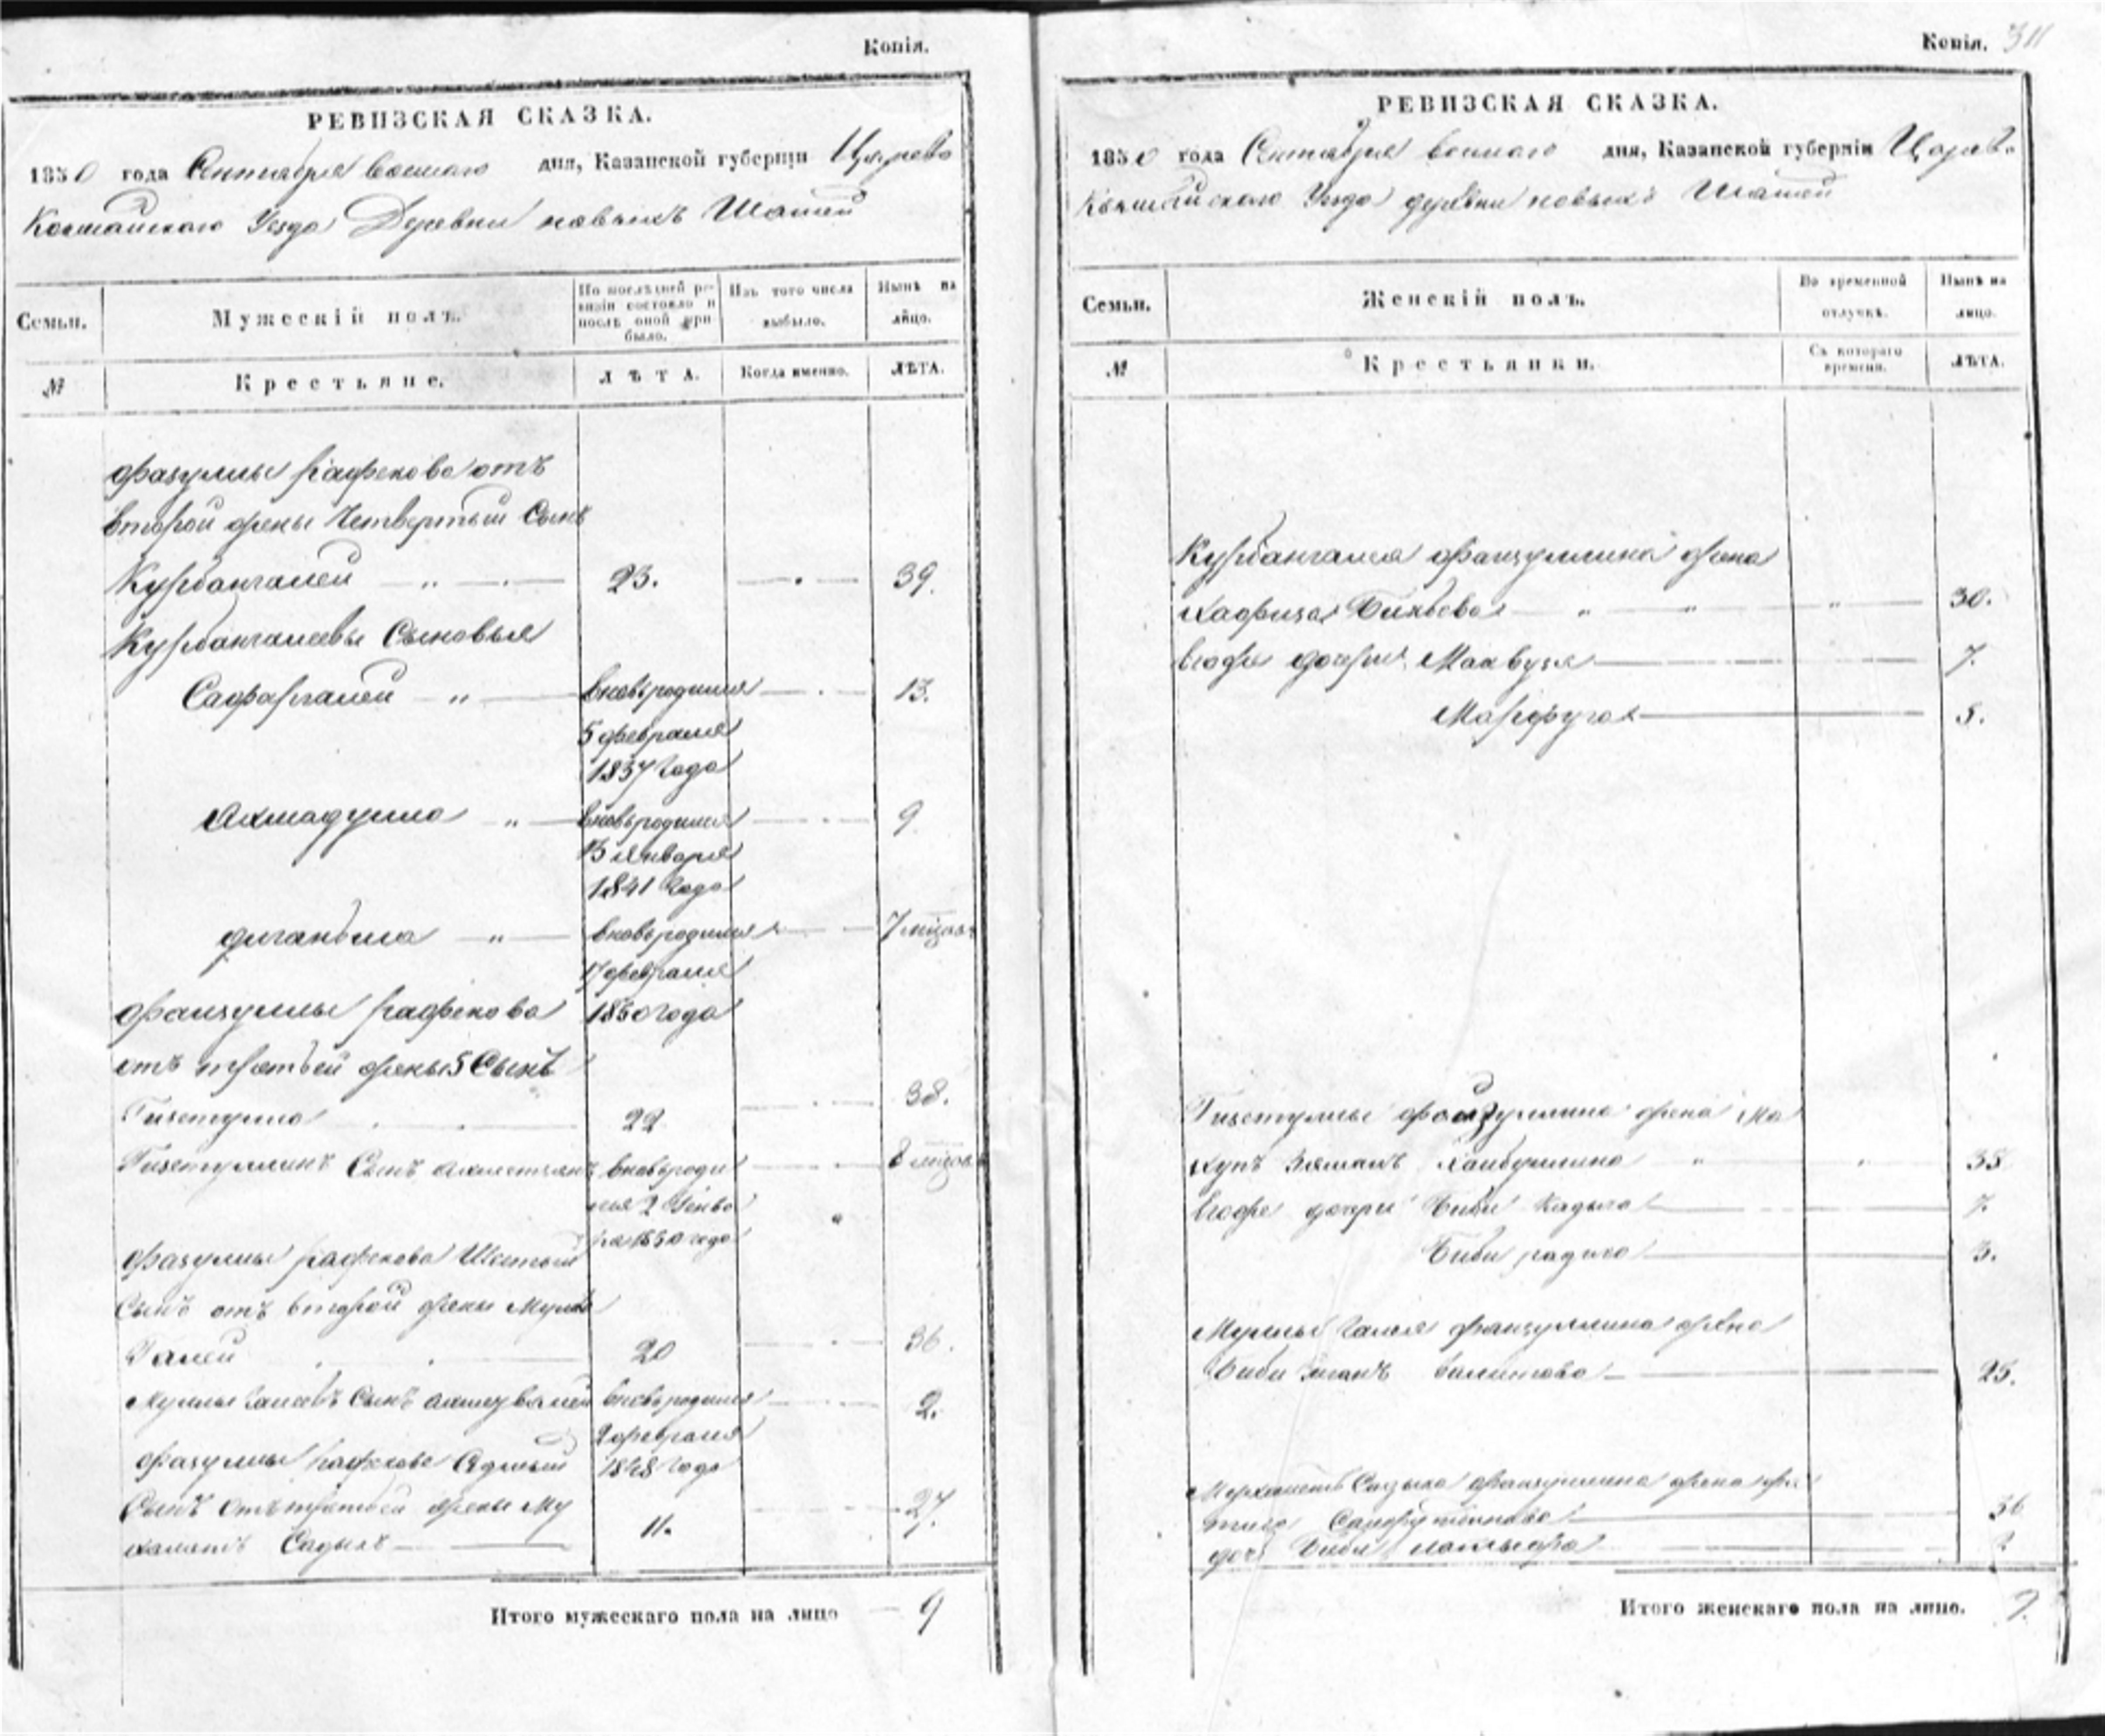 Копія.
РЕВИЗСКАЯ СКАЗКА.
1850 года Сентября дня, Казанской губерніи Царево
Кокшайскаго Уезда Деревни новыхъ Шашей
Семьи.
Мужескій полъ.
По послѣдней ре-
визіи состояло и
послѣ оной при
было.
Изъ того числа
выбыло.
Нынѣ на
лицо.
№
Крестьяне.
ЛѢТА.
Когда именно.
ЛѢТА.
Фазуллы Рафекова отъ
второй жены Четвертый Сынъ
Курбангалей 23. 39.
Курбангалеевы Сыновья
Сафаргалей вновьродился 13.
5 февраля
1837 Года
Ахмадулла вновьродился 9
13 Января
1841 Года
вновьродился 7
17 февраля
Файзуллы Рафекова 1850 года
отъ третьей жены 5 Сынъ
Гизетулла 22 38.
Гизетуллинъ Сынъ Ахметзянъ вновьроди 8
лся 2 Генва
ря 1850 года
Фазуллы Рафекова Шестый
Сынъ отъ второй жены Мулла
Галей 20 36.
Муллы Галеевъ Сынъ вновьродился 2.
2 февраля
Фазуллы Рафекова Седмый 1848 Года
Сынъ отъ третьей жены Му
хаметъ Садыкъ 11. 27.
Итого мужескаго пола на лицо 9
Копія. 311
РЕВИЗСКАЯ СКАЗКА.
1850 года Сентября дня, Казанской губерніи Царево
Кокшайскаго Уезда деревни новыхъ Шашей
Семьи.
Женскій полъ.
Во временной
отлучкѣ.
Нынѣ на
лицо.
№
Крестьянки.
Съ котораго
времени.
ЛѢТА.
Курбангалея Файзуллина жена
Хафиза Бикбева 30.
Ево же дочери Махвузя 7.
Марфуга 5.
Гизетуллы Файзуллина жена Ма
Хайбуллина 35
Ево же дочери Биби 7.
Биби 3.
Муллы Галея Файзуллина жена
Биби 25.
Мухаметъ Садыка Файзуллина жена
36
дочь Биби
Итого женскаго пола на лицо.